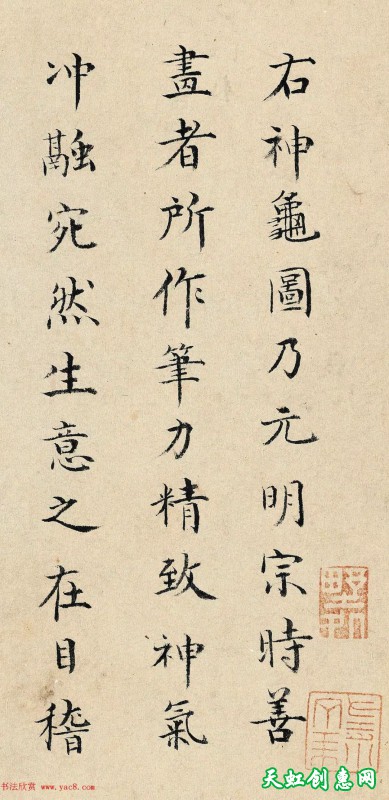 右神龜圖乃元明宗時善
畫者所作筆力精致神氣
冲融宛然生意之在目稽
书法欣赏 www.yac8.com
天虹创惠网